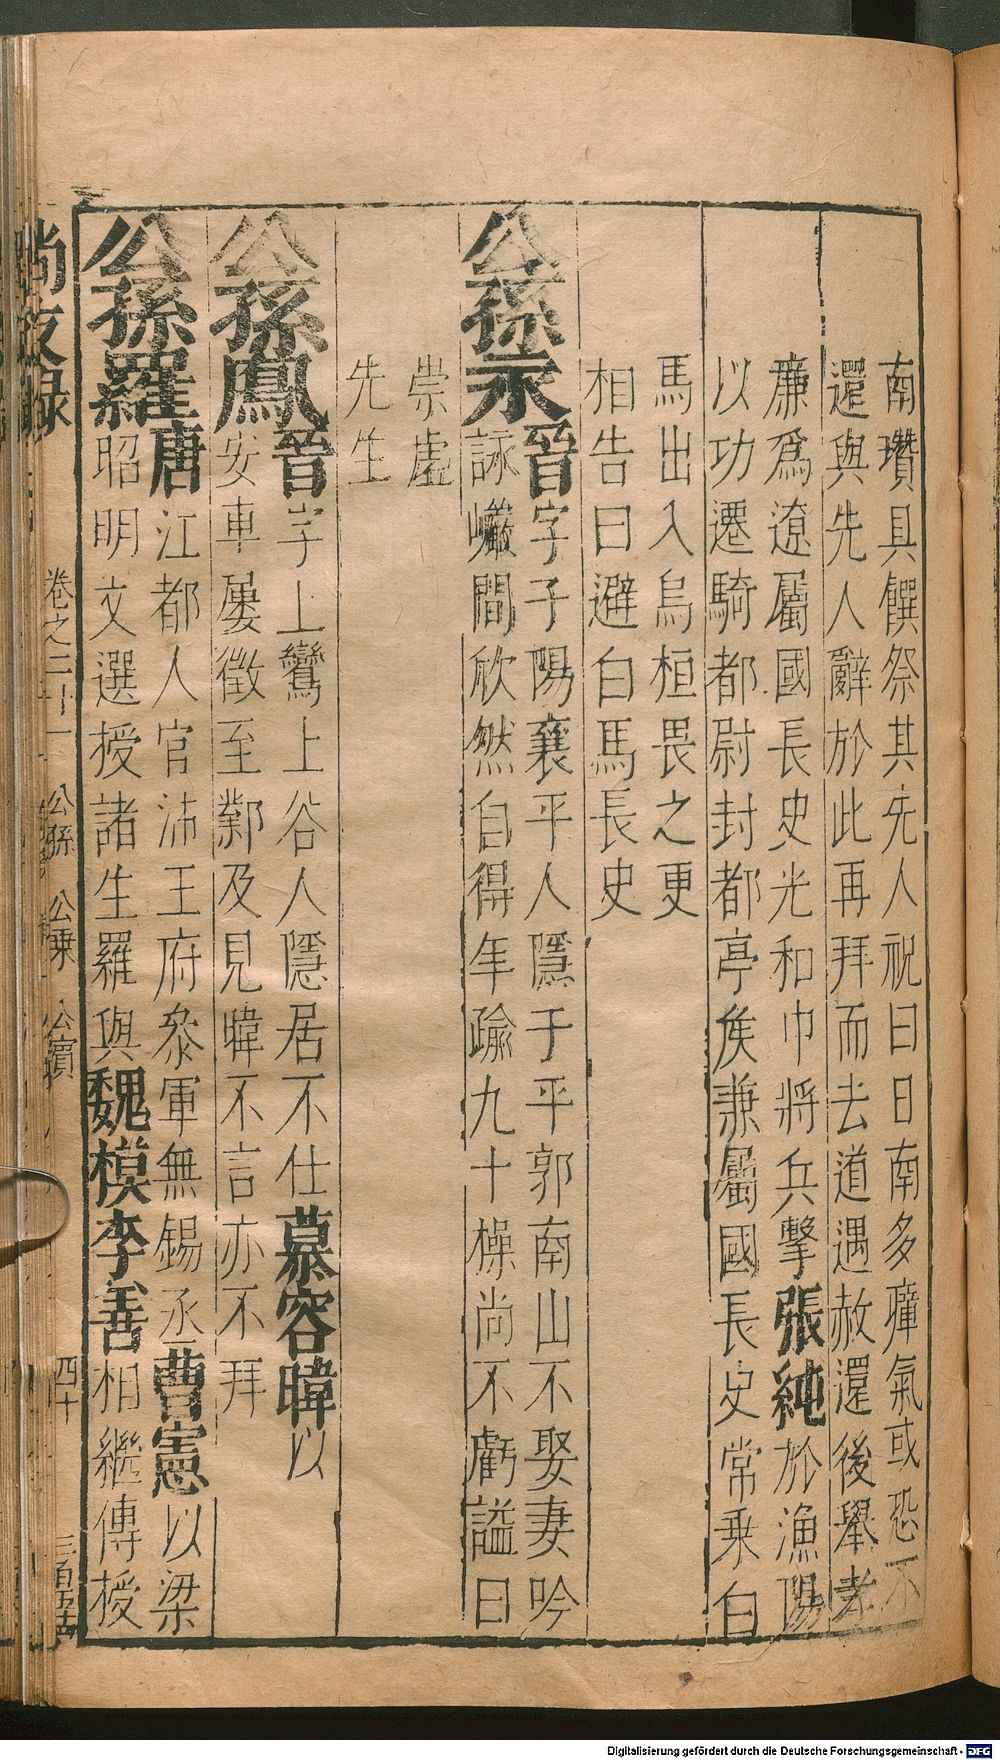 南瓚具饌祭其先人祝曰日南多瘴氣或恐不
還與先人辭於此再拜而去道遇赦還後舉孝
廉爲遼屬國長史光和中將兵擊張純於漁陽
以功遷騎都尉封都亭侯兼屬國長史常乘白
馬出入烏桓畏之更
相告曰避白馬長史
公孫永
晉字子陽襄平人隱于平郭南山不娶妻吟
詠巖間欣然自得年踰九十操尚不虧謚曰
崇虛
先生
公孫鳳
晉字上鸞上谷人隱居不仕慕容暐以
安車屢徵至鄴及見暐不言亦不拜
公孫羅
唐江都人官沛王府叅軍無錫丞曹憲以梁
昭明文選授諸生羅與魏模李善相繼傳授
尚友錄
卷之二十一 公孫 公乘 公賓
四十
Digitalisierung gefördert durch die Deutsche Forschungsgemeinschaft - DFG